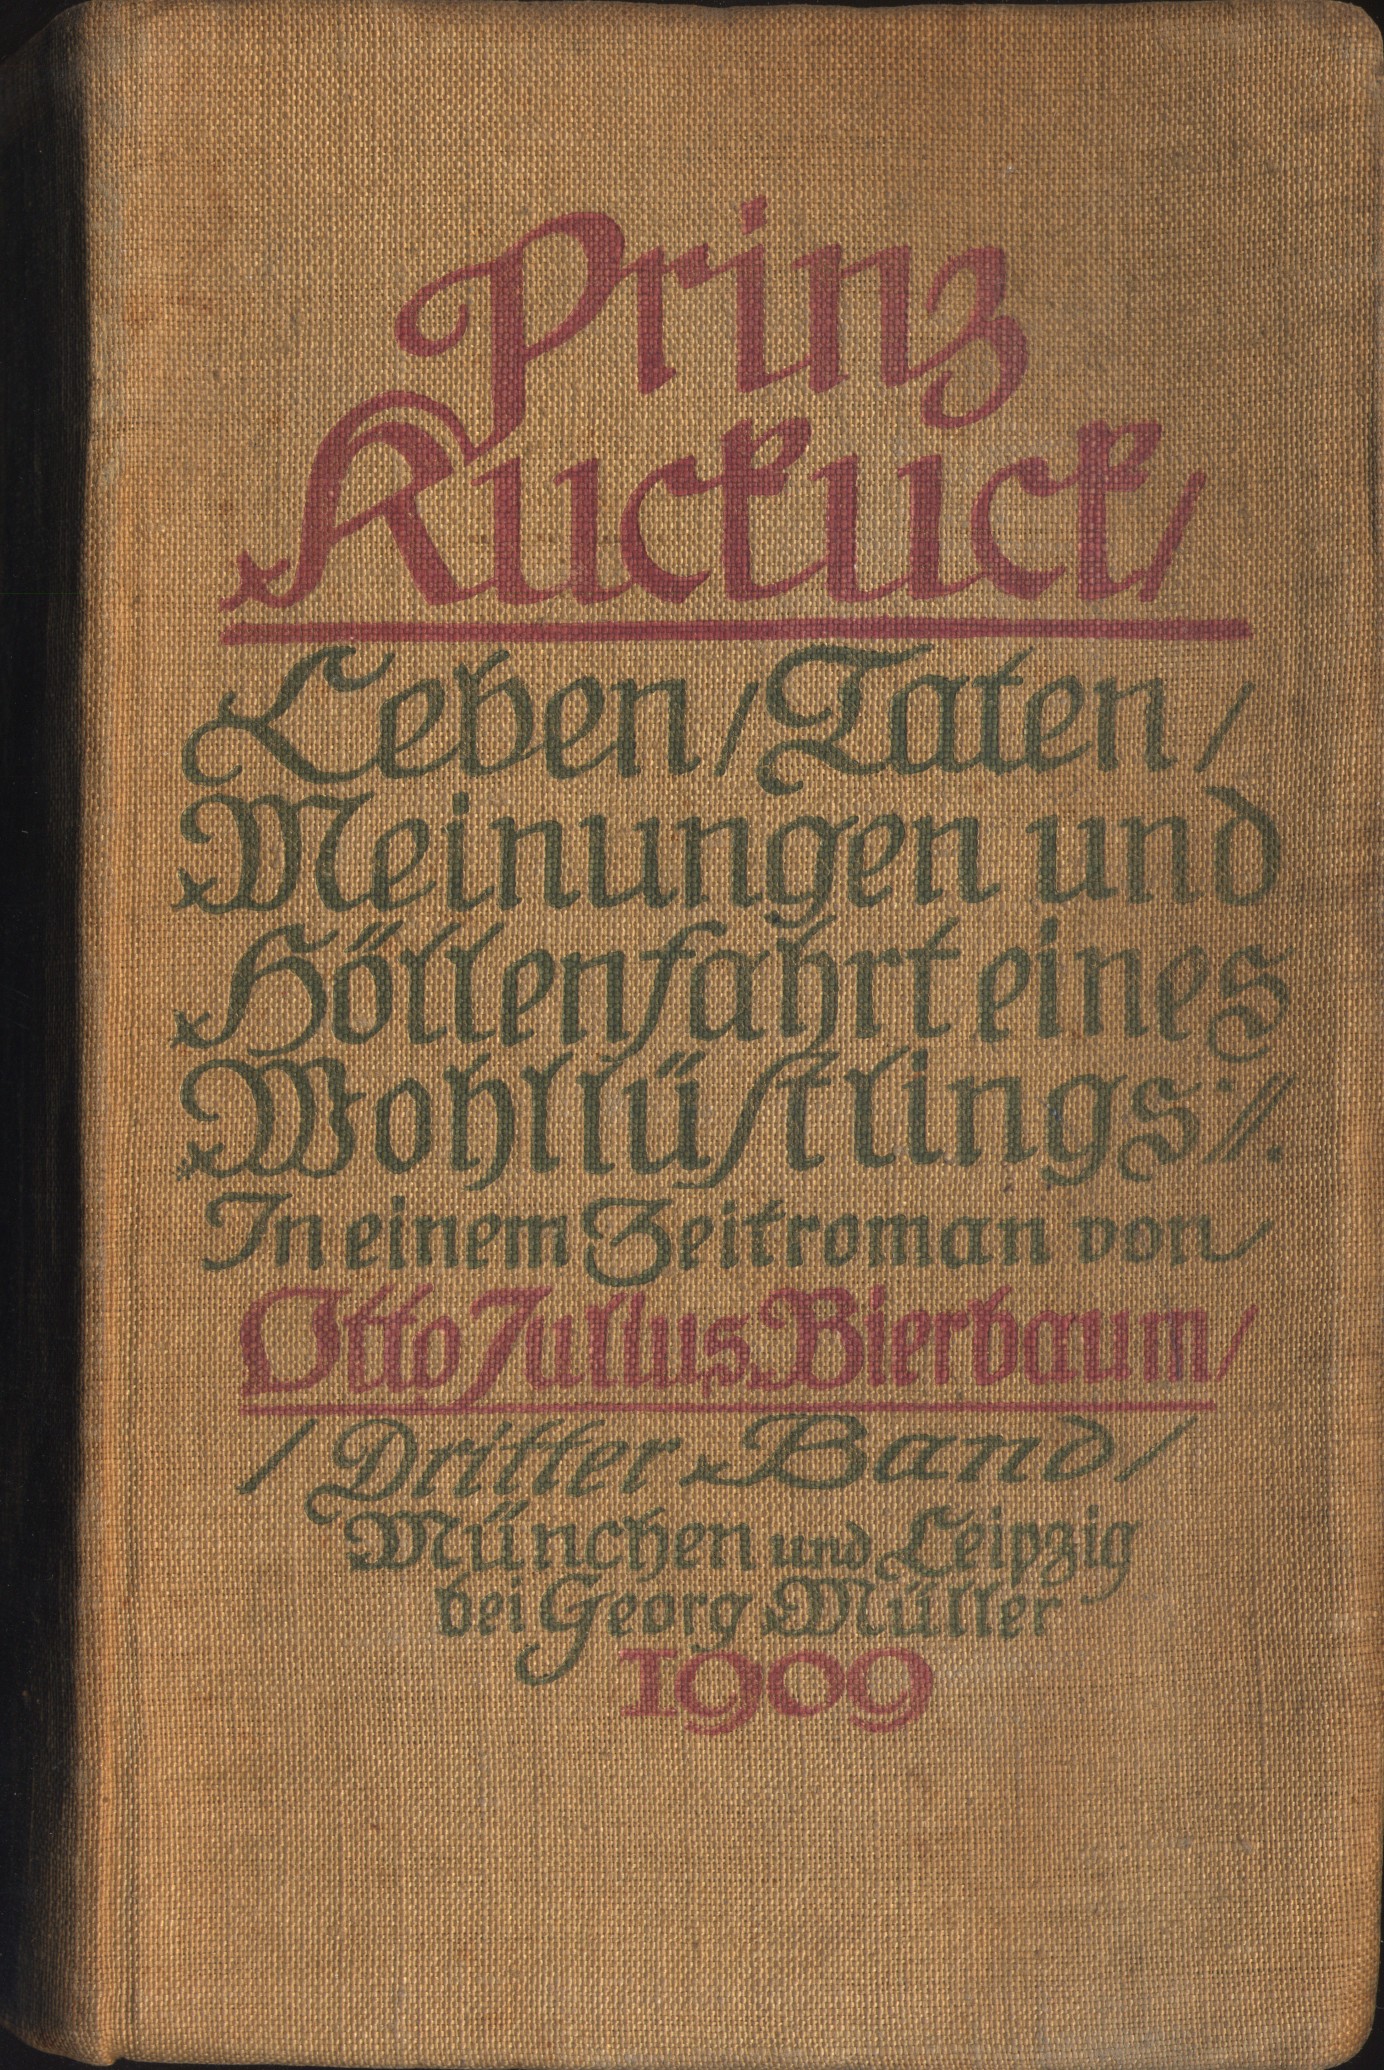 Prinz
Kuckuck /
Leben / Taten /
Meinungen und
Höllenfahrt eines
Wohllüſtlings //.
In einem Zeitroman von
Otto Julius Bierbaum /
/ Dritter Band /
München und Leipzig
bei Georg Müller
1909